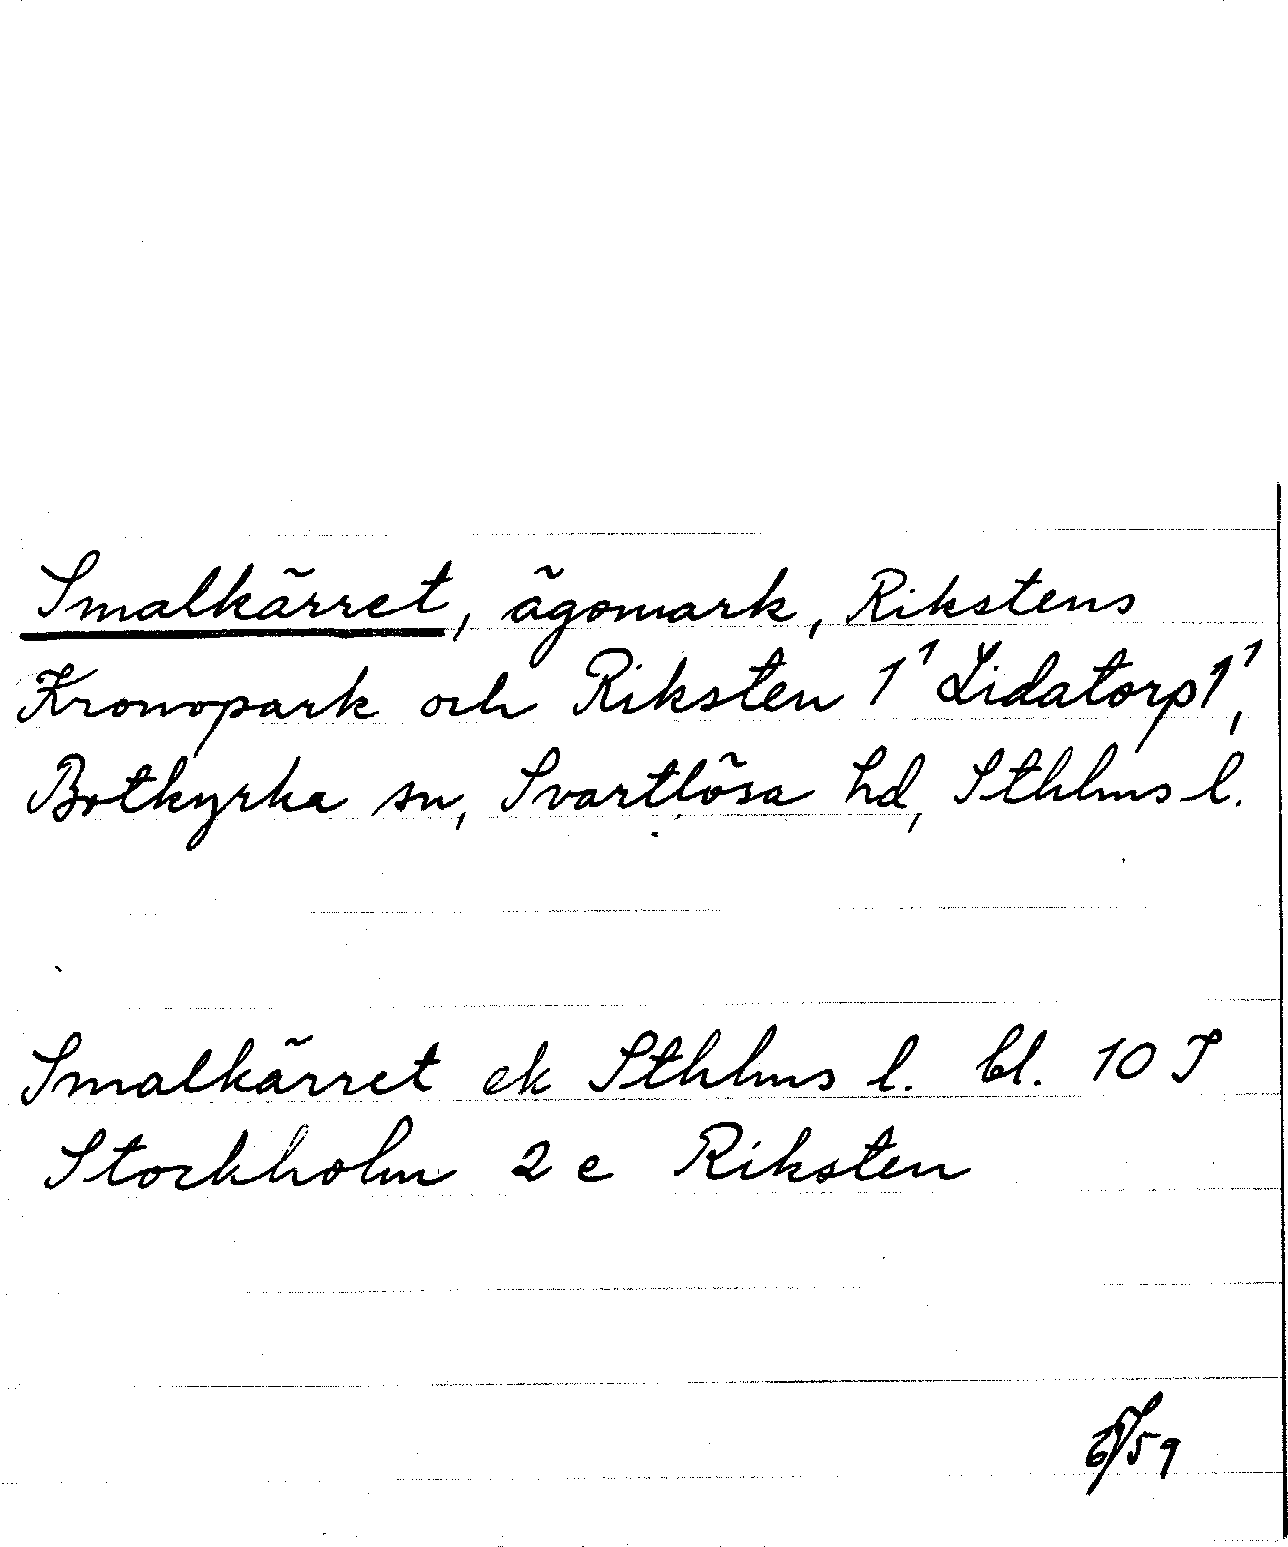 Smalkärret, ägomark, Rikstens
Kronopark och Riksten 1¹ Lidatorp 1¹,
Botkyrka sn, Svartlösa hd, Sthlms l.
Smalkärret ek Sthlms l. bl. 10 I
Stockholm 2 e Riksten